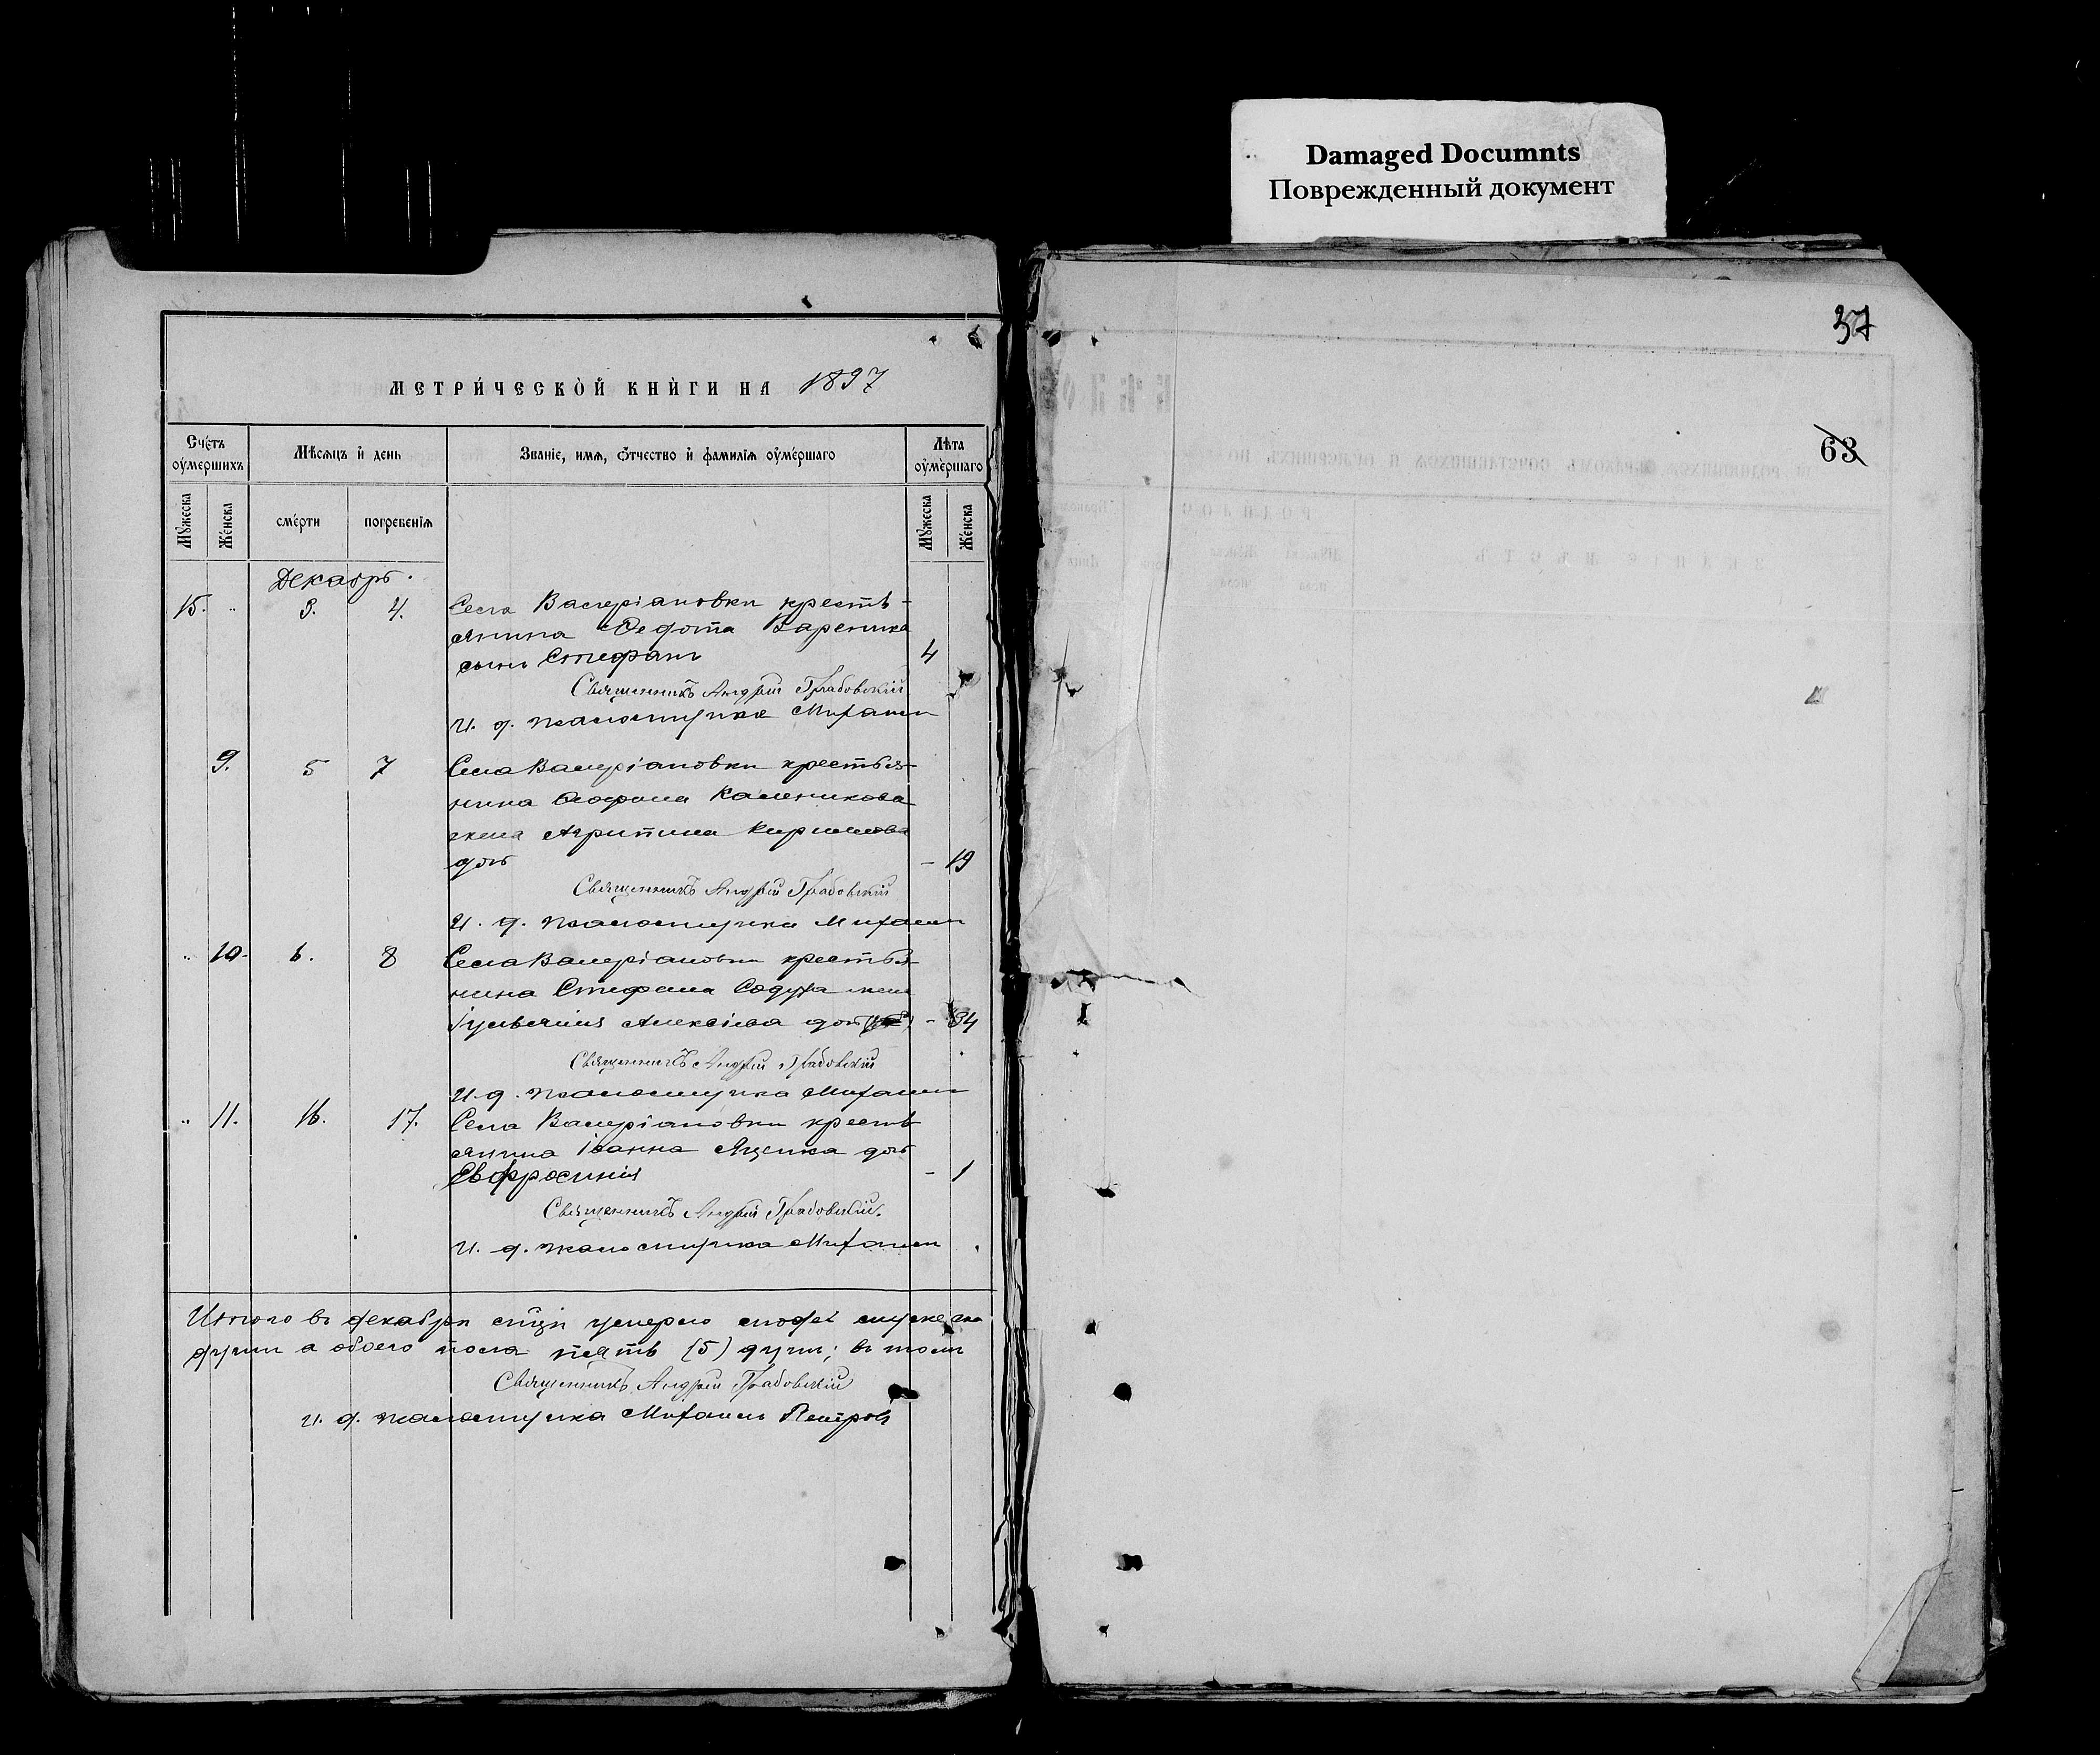 Damaged Documnts
Поврежденный документ
37
63
МЕТРИЧЕСКОЙ КНИГИ НА 1897
Счетъ оумершихъ
Мѣсяцъ и день
Званіе, имя, отчество и фамилія оумершаго
Лѣта оумершаго
Мужеска
Женска
смерти
погребенія
Мужеска
Женска
Декабрь.
15. „ 3. 4. Села Валеріановки кресть-
янина Федота Вареника
сынъ Стефанъ 4
Священникъ Андрей Грабовскій
И. д. псаломщика Михаилъ
9. 5 7 Села Валеріановки крестья-
нина Каленикова
жена Агрипина Кирилова
дочь - 19
Священникъ Андрей Грабовскій
И. д. псаломщика Михаилъ
„ 10. 6. 8 Села Валеріановки крестья-
нина Стефана жена
Алексіева дочь - 34
Священникъ Андрей Грабовскій
И. д. псаломщика Михаилъ
„ 11. 16. 17. Села Валеріановки кресть
янина Іоанна Яценка дочь
Евфросинія - 1
Священникъ Андрей Грабовскій.
И. д. псаломщика Михаилъ
Итого въ декабрѣ умерло людей мужеска
души а обоего пола пять (5) душъ; въ томъ
Священникъ Андрей Грабовскій
и. д. псаломщика Михаилъ